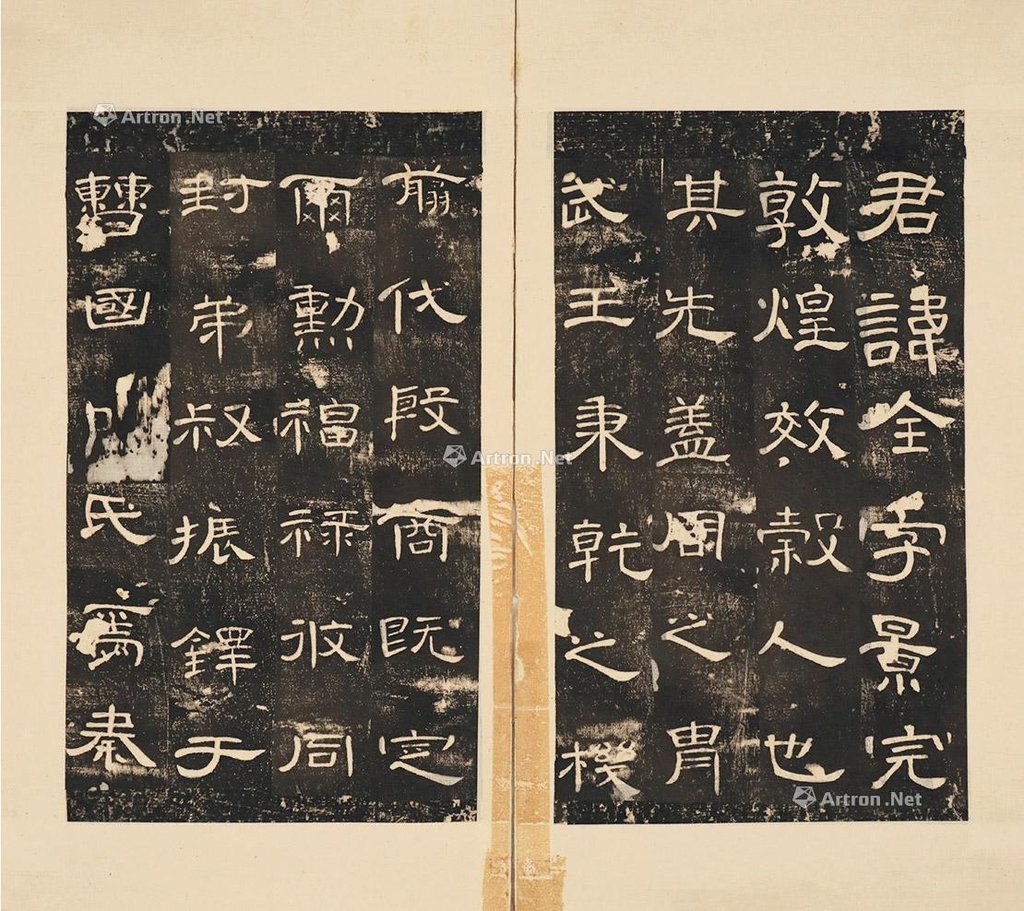 君諱全字景完
敦煌效穀人也
其先蓋周之胄
武王秉乾之機
翦伐殷商既定
爾勳福祿攸同
封弟叔振鐸于
曹國氏焉秦
Artron.Net
Artron.Net
Artron.Net